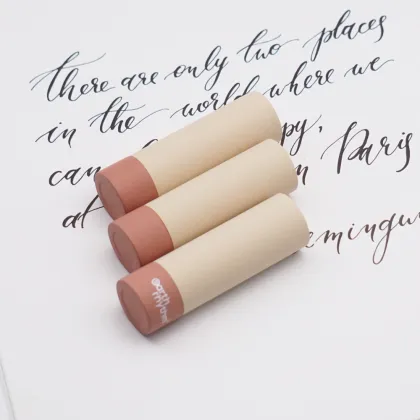 there are only two places
in the world where we
can py,
at n Paris
emingw
earth
rhythm